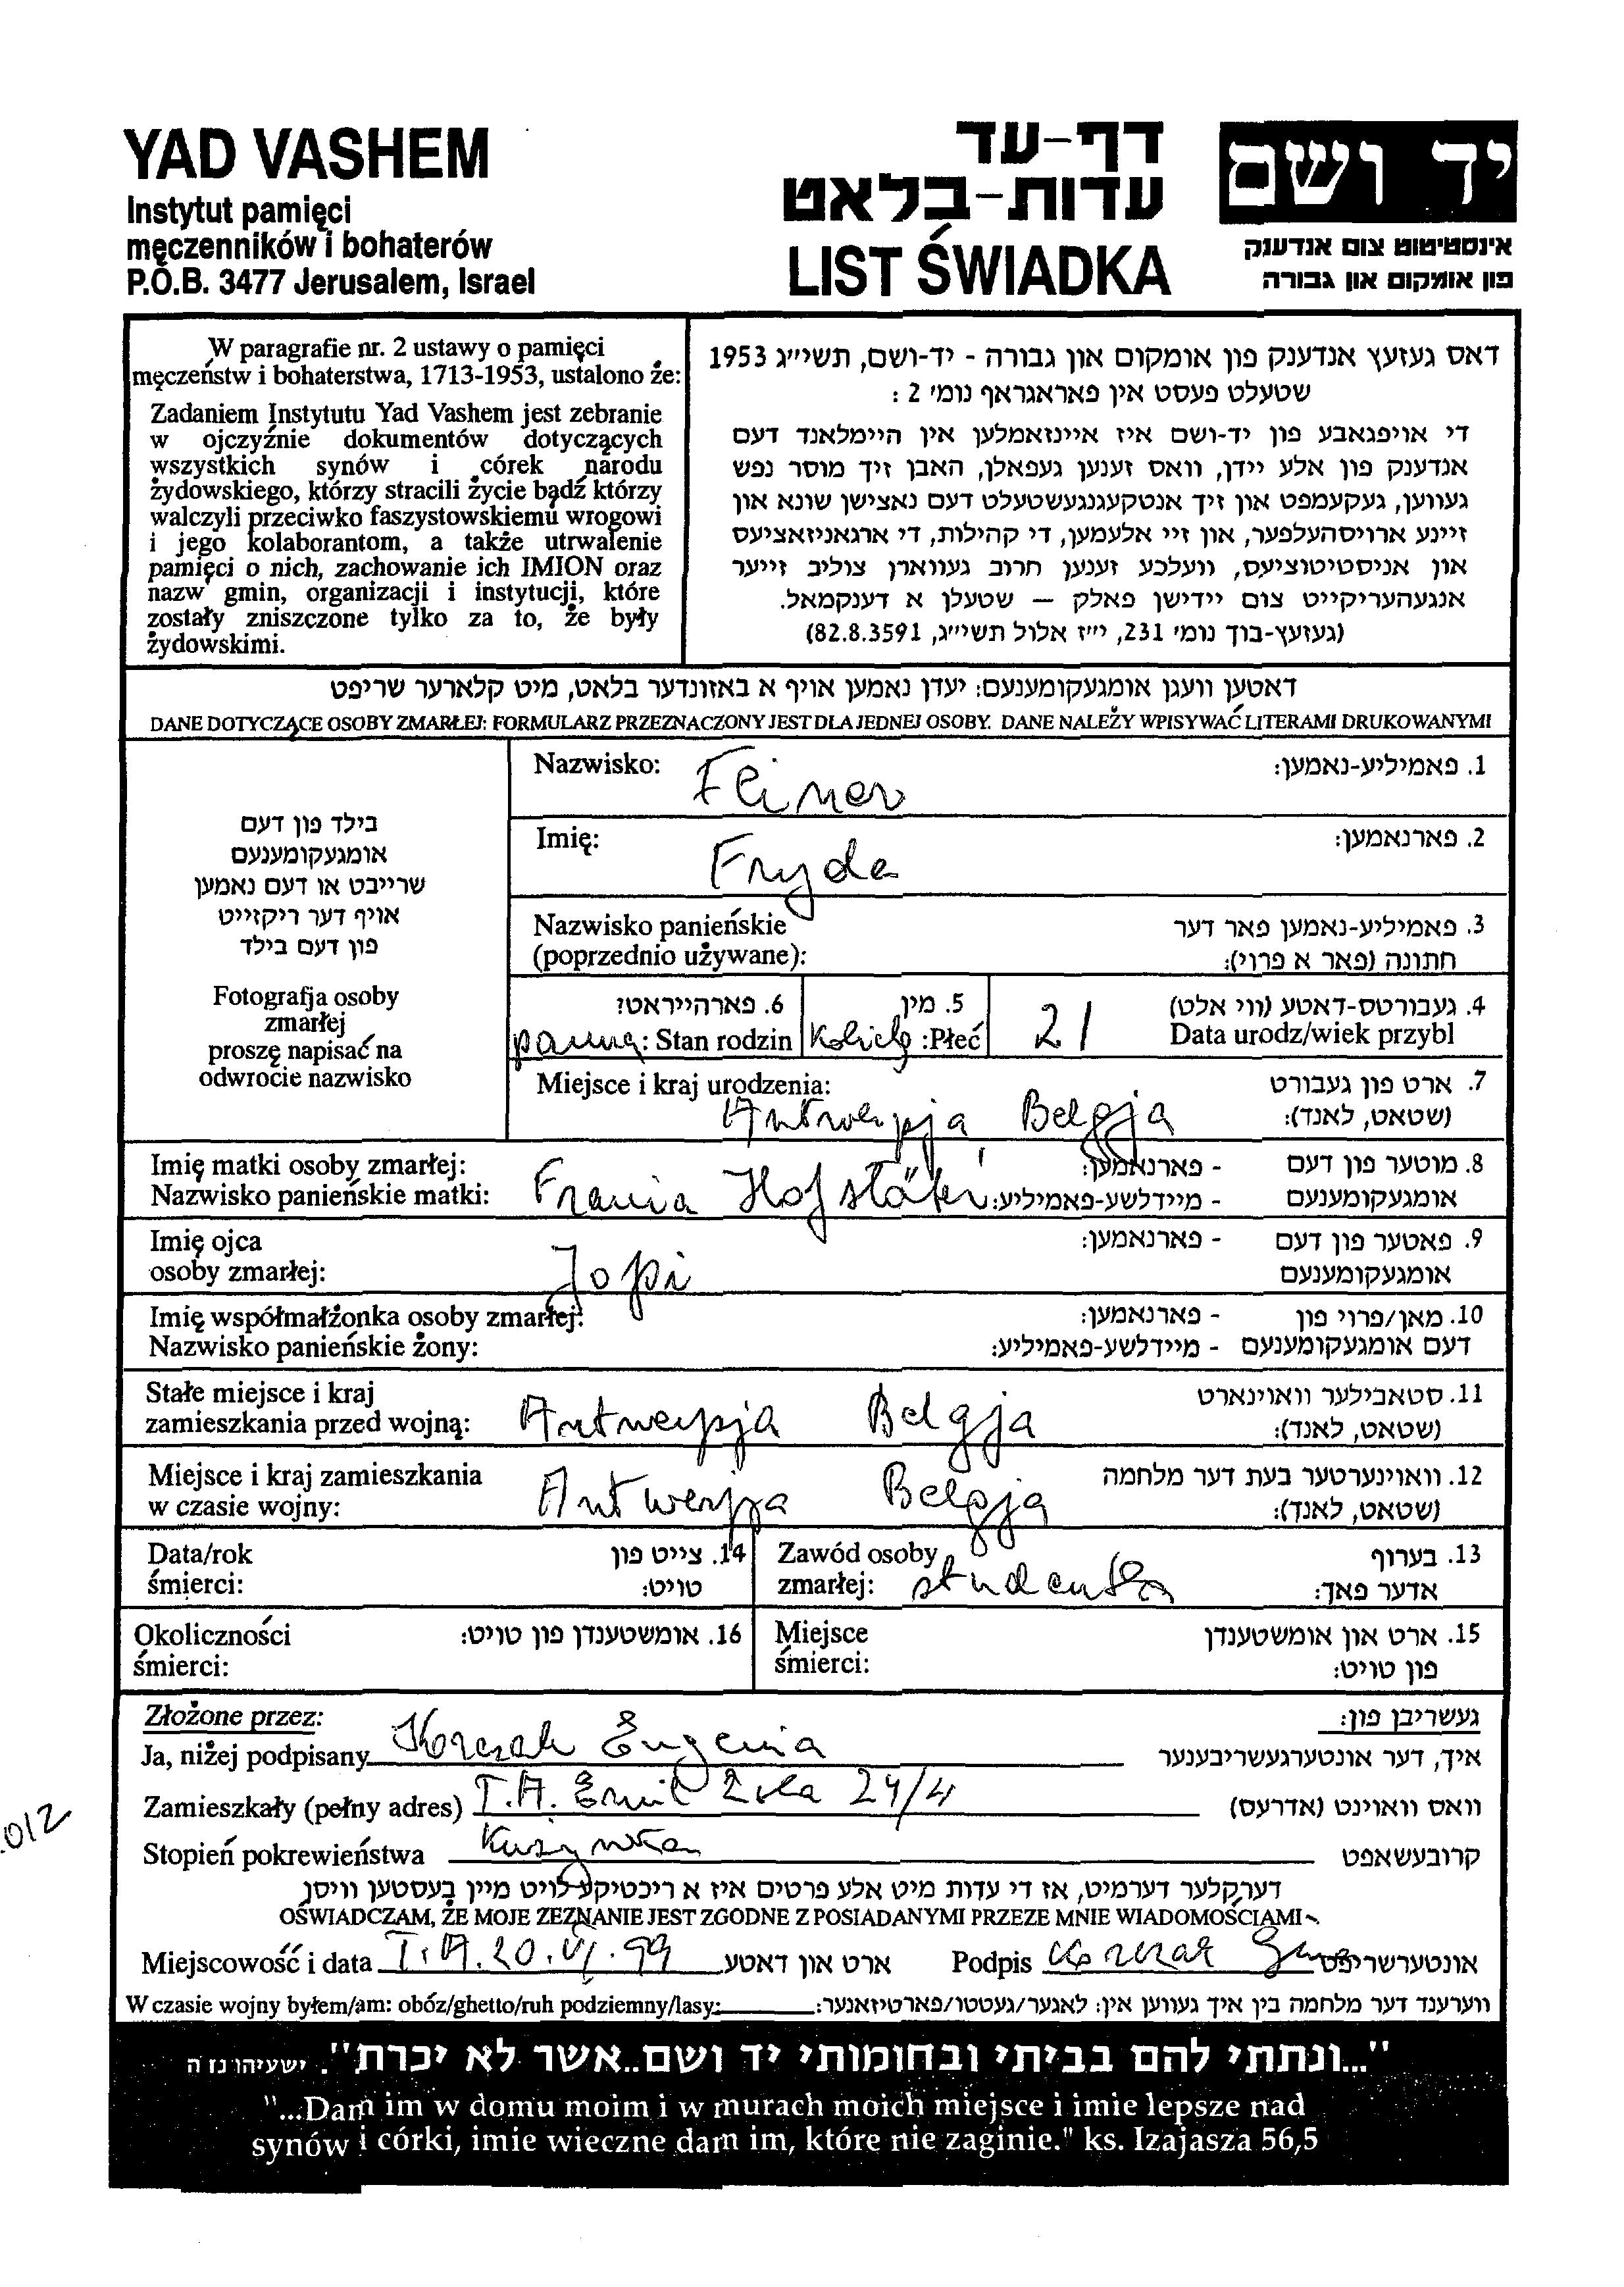 YAD VASHEM
Instytut pamięci
męczenników i bohaterów
P.O.B. 3477 Jerusalem, Israel
דף-עד
עדות-בלאט
LIST ŚWIADKA
יד ושם
אינסטיטוט צום אנדענק
פון אומקום און גבורה
W paragrafie nr. 2 ustawy o pamięci
męczeństw i bohaterstwa, 1713-1953, ustalono że:
Zadaniem Instytutu Yad Vashem jest zebranie
w ojczyźnie dokumentów dotyczących
wszystkich synów i córek narodu
żydowskiego, którzy stracili życie bądź którzy
walczyli przeciwko faszystowskiemu wrogowi
i jego kolaborantom, a także utrwalenie
pamięci o nich, zachowanie ich IMION oraz
nazw gmin, organizacji i instytucji, które
zostały zniszczone tylko za to, że były
żydowskimi.
דאס געזעץ אנדענק פון אומקום און גבורה - יד-ושם, תשי״ג 1953
שטעלט פעסט אין פאראגראף נומ׳ 2 :
די אויפגאבע פון יד-ושם איז איינזאמלען אין היימלאנד דעם
אנדענק פון אלע יידן, וואס זענען געפאלן, האבן זיך מוסר נפש
געווען, געקעמפט און זיך אנטקעגנגעשטעלט דעם נאצישן שונא און
זיינע ארויסהעלפער, און זיי אלעמען, די קהילות, די ארגאניזאציעס
און אניסטיטוציעס, וועלכע זענען חרוב געווארן צוליב זייער
אנגעהעריקייט צום יידישן פאלק – שטעלן א דענקמאל.
(געזעץ-בוך נומ׳ 231, י״ז אלול תשי״ג, 82.8.3591)
דאטען וועגן אומגעקומענעם: יעדן נאמען אויף א באזונדער בלאט, מיט קלארער שריפט
DANE DOTYCZĄCE OSOBY ZMARŁEJ: FORMULARZ PRZEZNACZONY JEST DLA JEDNEJ OSOBY. DANE NALEŻY WPISYWAĆ LITERAMI DRUKOWANYMI
בילד פון דעם
אומגעקומענעם
שרייבט או דעם נאמען
אויף דער ריקזייט
פון דעם בילד
Fotografja osoby
zmarłej
proszę napisać na
odwrocie nazwisko
Nazwisko: Feiner 1. פאמיליע-נאמען:
Imię: Fryda 2. פארנאמען:
Nazwisko panieńskie 3. פאמיליע-נאמען פאר דער
(poprzednio używane): חתונה (פאר א פרוי):
6. פארהייראט? 5. מין 4. געבורטס-דאטע (ווי אלט)
panna : Stan rodzin Kobieta :Płeć 21 Data urodz/wiek przybl
Miejsce i kraj urodzenia: 7. ארט פון געבורט
Antwerpja Belgja (שטאט, לאנד):
Imię matki osoby zmarłej: - פארנאמען: 8. מוטער פון דעם
Nazwisko panieńskie matki: Frania - מיידלשע-פאמיליע: אומגעקומענעם
Imię ojca - פארנאמען: 9. פאטער פון דעם
osoby zmarłej: אומגעקומענעם
Imię współmałżonka osoby zmarłej: - פארנאמען: 10. מאן/פרוי פון
Nazwisko panieńskie żony: - מיידלשע-פאמיליע: דעם אומגעקומענעם
Stałe miejsce i kraj 11. סטאבילער וואוינארט
zamieszkania przed wojną: Antwerpja Belgja (שטאט, לאנד):
Miejsce i kraj zamieszkania 12. וואוינערטער בעת דער מלחמה
w czasie wojny: Antwerpja Belgja (שטאט, לאנד):
Data/rok 14. צייט פון Zawód osoby 13. בערוף
śmierci: טויט: zmarłej: studentka אדער פאך:
Okoliczności 16. אומשטענדן פון טויט: Miejsce 15. ארט און אומשטענדן
śmierci: śmierci: פון טויט:
Złożone przez: געשריבן פון:
Ja, niżej podpisany Korczak Eugenia איך, דער אונטערגעשריבענער
Zamieszkały (pełny adres) T.A. Emil Zola 24/4 וואס וואוינט (אדרעס)
Stopień pokrewieństwa Kuzynka קרובעשאפט
דערקלער דערמיט, אז די עדות מיט אלע פרטים איז א ריכטיקע לויט מיין בעסטען וויסן
OŚWIADCZAM, ŻE MOJE ZEZNANIE JEST ZGODNE Z POSIADANYMI PRZEZE MNIE WIADOMOŚCIAMI
Miejscowość i data T.A. 20.VI.99 ארט און דאטע Podpis Korczak אונטערשריפט
W czasie wojny byłem/am: obóz/ghetto/ruh podziemny/lasy: ווערענד דער מלחמה בין איך געווען אין: לאגער/געטטו/פארטיזאנער:
"...ונתתי להם בביתי ובחומותי יד ושם..אשר לא יכרת". ישעיהו נז ה
"...Dam im w domu moim i w murach moich miejsce i imie lepsze nad
synów i córki, imie wieczne dam im, które nie zaginie." ks. Izajasza 56,5